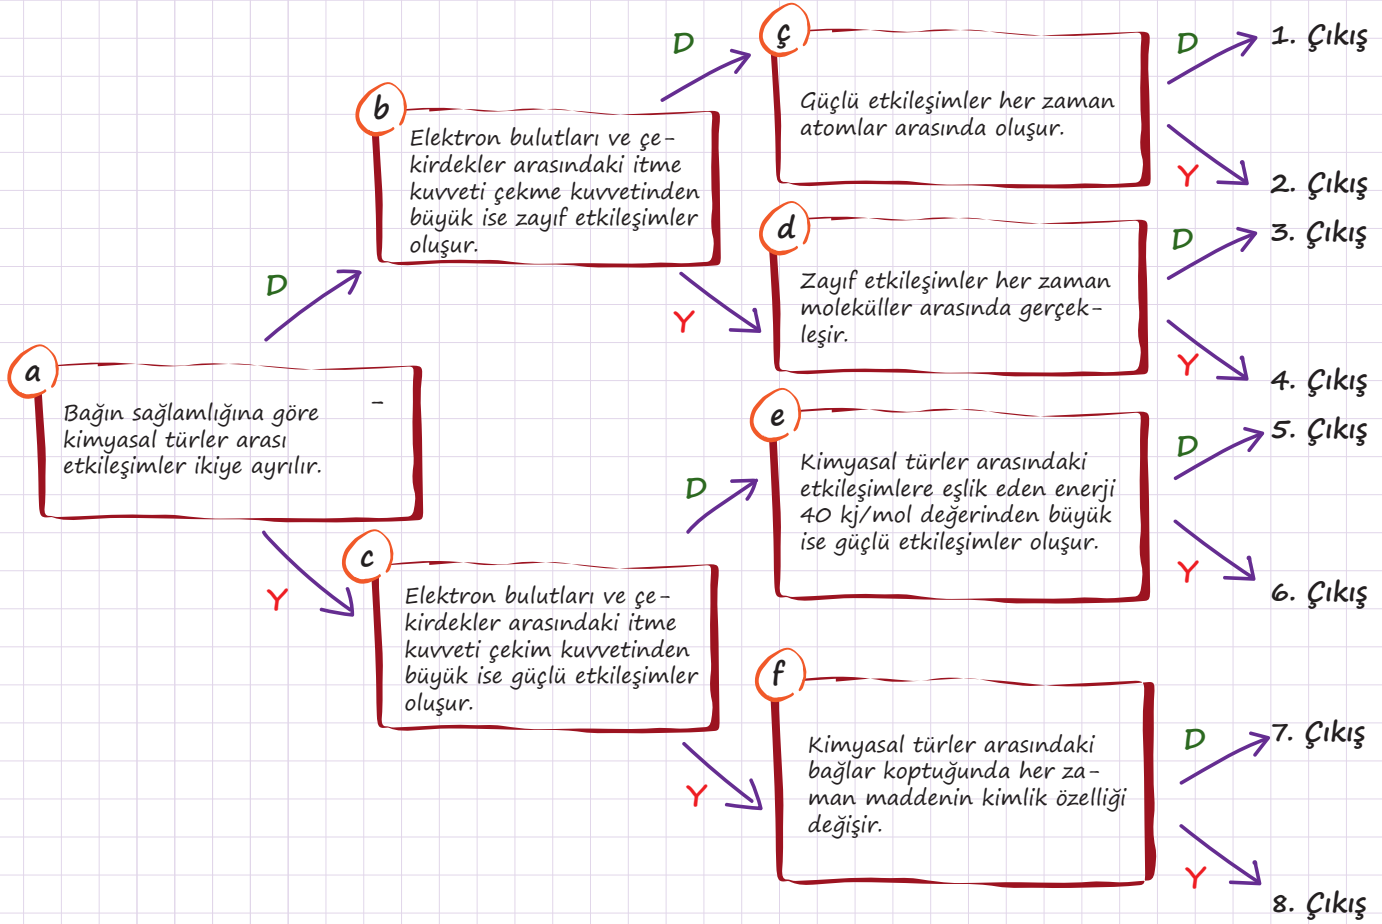 a
Bağın sağlamlığına göre
kimyasal türler arası
etkileşimler ikiye ayrılır.
-
D
Y
b
Elektron bulutları ve çe-
kirdekler arasındaki itme
kuvveti çekme kuvvetinden
büyük ise zayıf etkileşimler
oluşur.
D
Y
c
Elektron bulutları ve çe-
kirdekler arasındaki itme
kuvveti çekim kuvvetinden
büyük ise güçlü etkileşimler
oluşur.
D
Y
ç
Güçlü etkileşimler her zaman
atomlar arasında oluşur.
D
1. Çıkış
Y
2. Çıkış
d
Zayıf etkileşimler her zaman
moleküller arasında gerçek-
leşir.
D
3. Çıkış
Y
4. Çıkış
e
Kimyasal türler arasındaki
etkileşimlere eşlik eden enerji
40 kj/mol değerinden büyük
ise güçlü etkileşimler oluşur.
D
5. Çıkış
Y
6. Çıkış
f
Kimyasal türler arasındaki
bağlar koptuğunda her za-
man maddenin kimlik özelliği
değişir.
D
7. Çıkış
Y
8. Çıkış